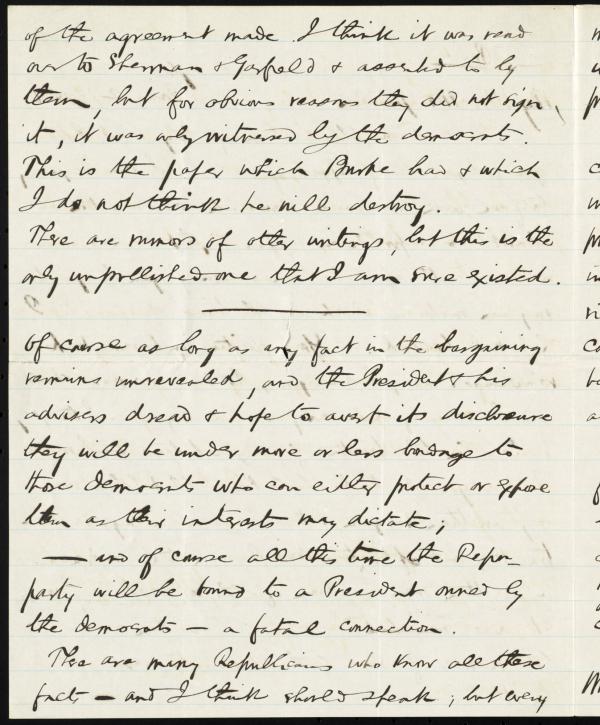 of the agreement made. I think it was read
over to Sherman & Garfield & assented to by
them, but for obvious reasons they did not sign
it, it was only witnessed by the democrats.
This is the paper which Burke has & which
I do not think he will destroy.
There are rumors of other writings, but this is the
only unpublished one that I am sure existed.
Of course as long as any fact in the bargaining
remains unrevealed, and the President & his
advisers dread & hope to avert its disclosure
they will be under more or less bondage to
those democrats who can either protect or expose
them as their interests may dictate;
— and of course all this time the Repn-
party will be bound to a President owned by
the democrats — a fatal connection.
There are many Republicans who know all these
facts — and I think should speak; but every